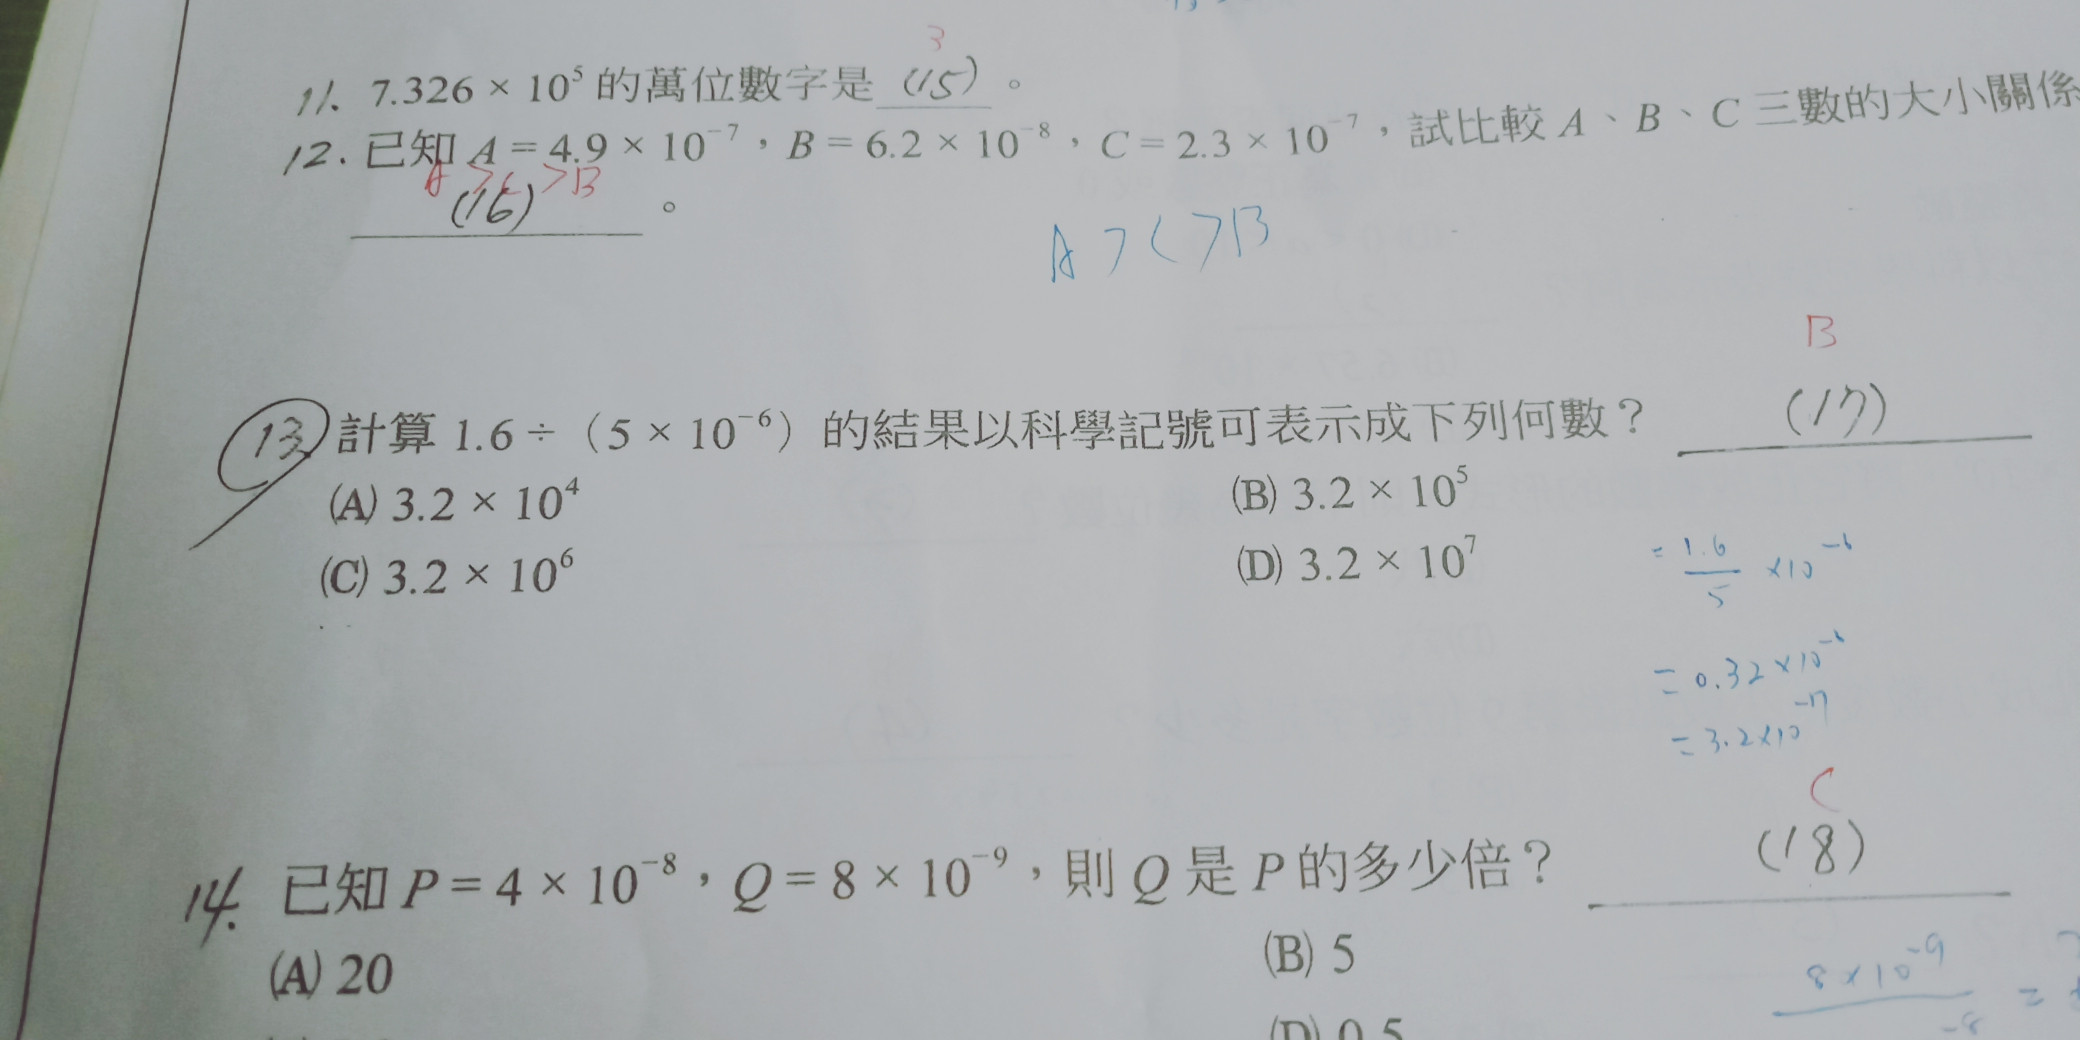 3
11. 7.326 × 10⁵ 的萬位數字是 (15) 。
12. 已知 A = 4.9 × 10⁻⁷，B = 6.2 × 10⁻⁸，C = 2.3 × 10⁻⁷，試比較 A、B、C 三數的大小關係
A > C > B
(16) 。
A > C > B
B
13. 計算 1.6 ÷（5 × 10⁻⁶）的結果以科學記號可表示成下列何數？ (17)
(A) 3.2 × 10⁴ (B) 3.2 × 10⁵
(C) 3.2 × 10⁶ (D) 3.2 × 10⁷
= 1.6/5 × 10⁻⁶
= 0.32 × 10⁻⁶
= 3.2 × 10⁻⁷
C
14. 已知 P = 4 × 10⁻⁸，Q = 8 × 10⁻⁹，則 Q 是 P 的多少倍？ (18)
(A) 20 (B) 5
8 × 10⁻⁹ =
(D) 0.5
⁻⁸